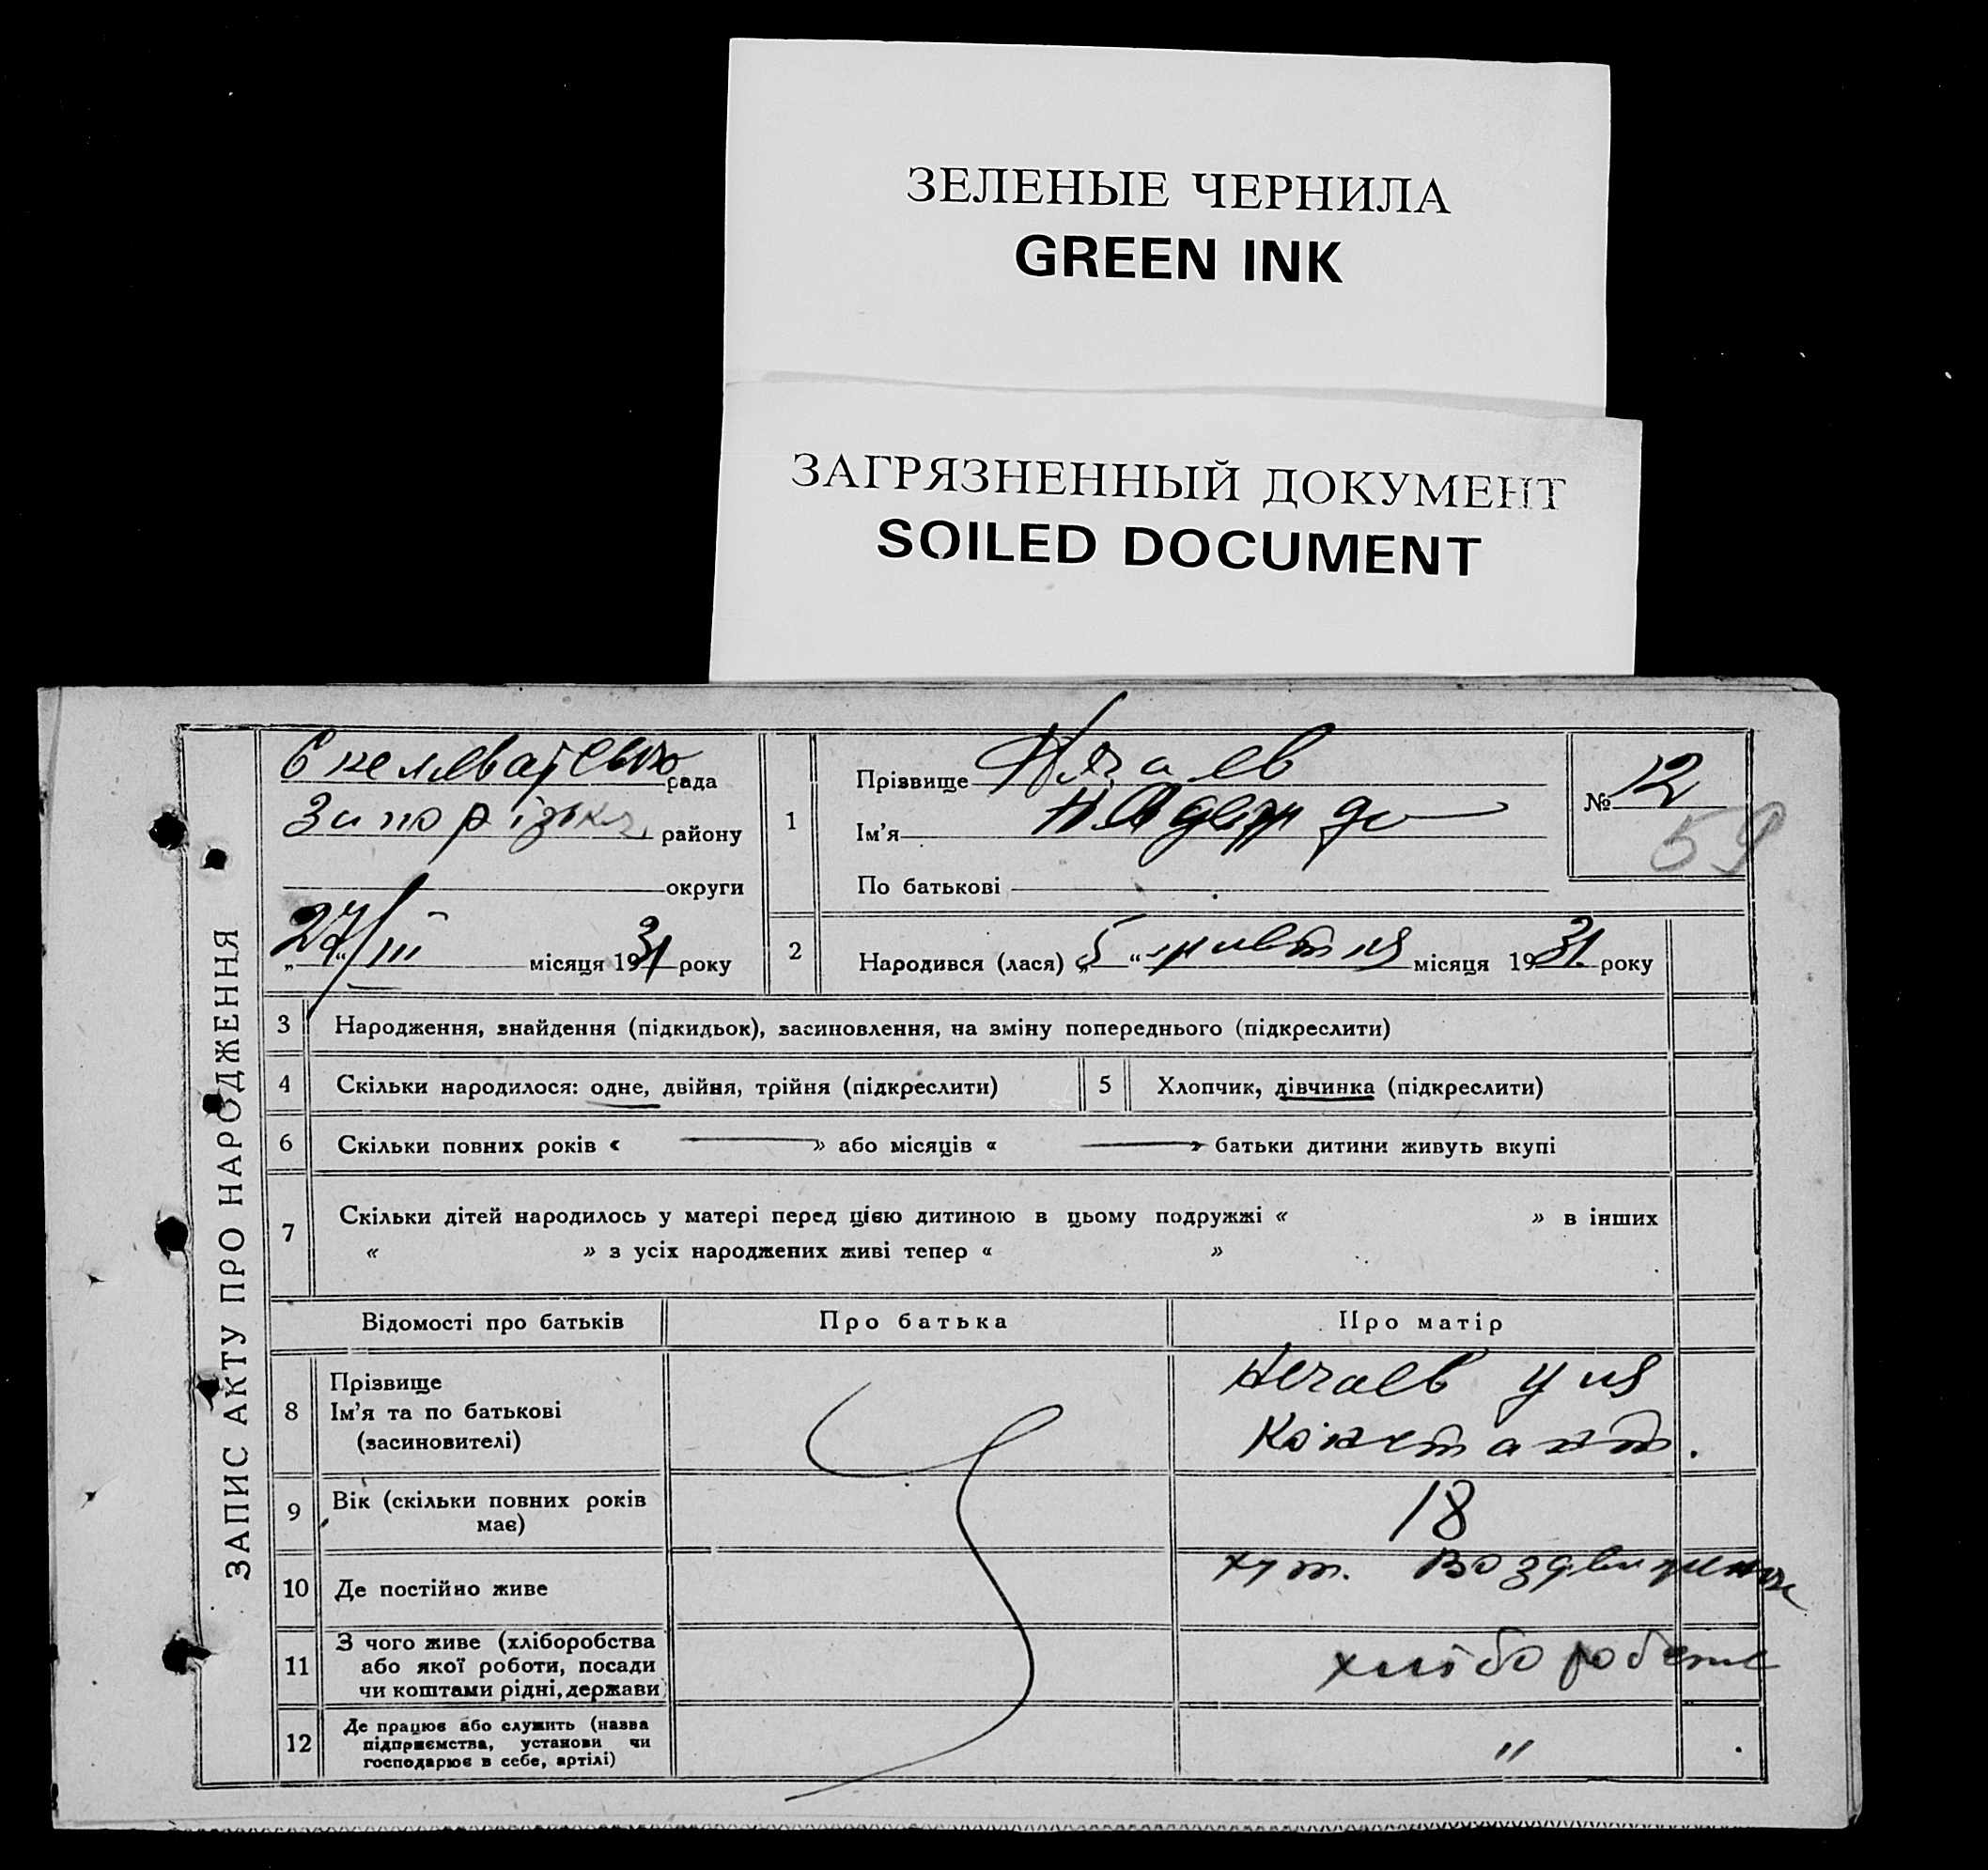 ЗЕЛЕНЫЕ ЧЕРНИЛА
GREEN INK
ЗАГРЯЗНЕННЫЙ ДОКУМЕНТ
SOILED DOCUMENT
ЗАПИС АКТУ ПРО НАРОДЖЕННЯ
рада
району
округи
"27/III місяця 1931 року
1
Прізвище
Ім'я
По батькові
№ 12
59
2
Народився (лася) „5“ місяця 1931 року
3 Народження, знайдення (підкидьок), засиновлення, на зміну попереднього (підкреслити)
4 Скільки народилося: одне, двійня, трійня (підкреслити) 5 Хлопчик, дівчинка (підкреслити)
6 Скільки повних років « — » або місяців « — » батьки дитини живуть вкупі
7 Скільки дітей народилось у матері перед цією дитиною в цьому подружжі « » в інших
« » з усіх народжених живі тепер « »
Відомості про батьків Про батька Про матір
8 Прізвище
Ім'я та по батькові
(засиновителі)
Нечаев
Констант.
9 Вік (скільки повних років
має)
18
10 Де постійно живе
хут.
11 З чого живе (хліборобства
або якої роботи, посади
чи коштами рідні, держави
12 Де працює або служить (назва
підприємства, установи чи
господарює в себе, артілі)
"